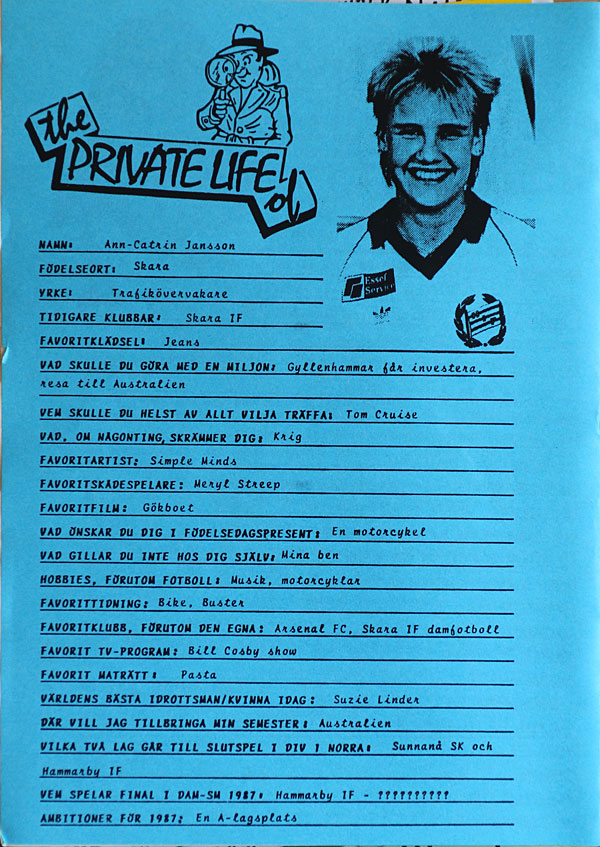 the
PRIVATE LIFE
of
Essef
Service
adidas
NAMN: Ann-Catrin Jansson
FÖDELSEORT: Skara
YRKE: Trafikövervakare
TIDIGARE KLUBBAR: Skara IF
FAVORITKLÄDSEL: Jeans
VAD SKULLE DU GÖRA MED EN MILJON: Gyllenhammar får investera,
resa till Australien
VEM SKULLE DU HELST AV ALLT VILJA TRÄFFA: Tom Cruise
VAD, OM NÅGONTING, SKRÄMMER DIG: Krig
FAVORITARTIST: Simple Minds
FAVORITSKÅDESPELARE: Meryl Streep
FAVORITFILM: Gökboet
VAD ÖNSKAR DU DIG I FÖDELSEDAGSPRESENT: En motorcykel
VAD GILLAR DU INTE HOS DIG SJÄLV: Mina ben
HOBBIES, FÖRUTOM FOTBOLL: Musik, motorcyklar
FAVORITTIDNING: Bike, Buster
FAVORITKLUBB, FÖRUTOM DEN EGNA: Arsenal FC, Skara IF damfotboll
FAVORIT TV-PROGRAM: Bill Cosby show
FAVORIT MATRÄTT: Pasta
VÄRLDENS BÄSTA IDROTTSMAN/KVINNA IDAG: Suzie Linder
DÄR VILL JAG TILLBRINGA MIN SEMESTER: Australien
VILKA TVÅ LAG GÅR TILL SLUTSPEL I DIV 1 NORRA: Sunnanå SK och
Hammarby IF
VEM SPELAR FINAL I DAM-SM 1987: Hammarby IF - ??????????
AMBITIONER FÖR 1987: En A-lagsplats